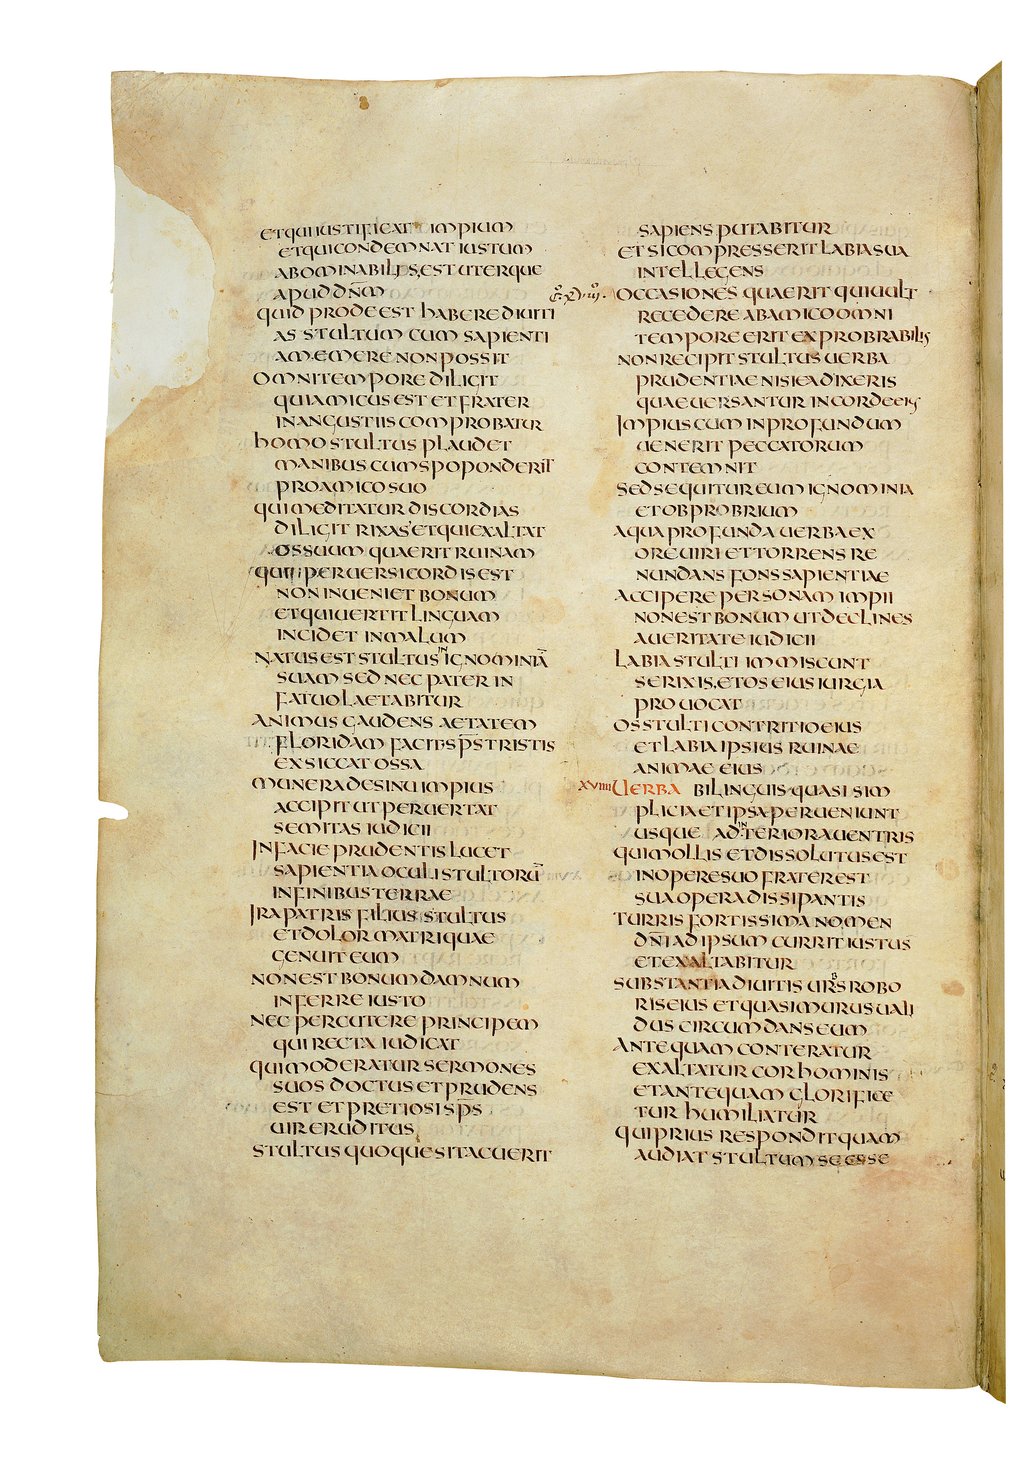 ETQUIIUSTIFICAT IMPIUM
ETQUICONDEMNAT IUSTUM
ABOMINABILIS EST UTERQUE
APUD DN̄M
QUID PRODEEST HABERE DIUITI
AS STULTUM CUM SAPIENTI
AM EMERE NON POSSIT
OMNI TEMPORE DILIGIT
QUI AMICUS EST ET FRATER
IN ANGUSTIIS COMPROBATUR
HOMO STULTUS PLAUDET
MANIBUS CUM SPOPONDERIT
PRO AMICO SUO
QUI MEDITATUR DISCORDIAS
DILIGIT RIXAS ET QUI EXALTAT
OS SUUM QUAERIT RUINAM
QUI PERUERSI CORDIS EST
NON INUENIET BONUM
ET QUI UERTIT LINGUAM
INCIDET IN MALUM
NATUS EST STULTUS IN IGNOMINIĀ
SUAM SED NEC PATER IN
FATUO LAETABITUR
ANIMUS GAUDENS AETATEM
FLORIDAM FACIT SP̄S TRISTIS
EXSICCAT OSSA
MUNERA DE SINU IMPIUS
ACCIPIT UT PERUERTAT
SEMITAS IUDICII
IN FACIE PRUDENTIS LUCET
SAPIENTIA OCULI STULTORŪ
IN FINIBUS TERRAE
IRA PATRIS FILIUS STULTUS
ET DOLOR MATRI QUAE
GENUIT EUM
NON EST BONUM DAMNUM
INFERRE IUSTO
NEC PERCUTERE PRINCIPEM
QUI RECTA IUDICAT
QUI MODERATUR SERMONES
SUOS DOCTUS ET PRUDENS
EST ET PRETIOSI SP̄S
UIR ERUDITUS
STULTUS QUOQUE SI TACUERIT
SAPIENS PUTABITUR
ET SI COMPRESSERIT LABIA SUA
INTELLEGENS
OCCASIONES QUAERIT QUI UULT
RECEDERE AB AMICO OMNI
TEMPORE ERIT EXPROBRABILIS
NON RECIPIT STULTUS UERBA
PRUDENTIAE NISI EA DIXERIS
QUAE UERSANTUR IN CORDE EIUS
IMPIUS CUM IN PROFUNDUM
UENERIT PECCATORUM
CONTEMNIT
SED SEQUITUR EUM IGNOMINIA
ET OBPROBRIUM
AQUA PROFUNDA UERBA EX
ORE UIRI ET TORRENS RE
NUNDANS FONS SAPIENTIAE
ACCIPERE PERSONAM IMPII
NON EST BONUM UT DECLINES
A UERITATE IUDICII
LABIA STULTI IMMISCUNT
SE RIXIS ET OS EIUS IURGIA
PROUOCAT
OS STULTI CONTRITIO EIUS
ET LABIA IPSIUS RUINAE
ANIMAE EIUS
XVIIII UERBA BILINGUIS QUASI SIM
PLICIA ET IPSA PERUENIUNT
USQUE AD INTERIORA UENTRIS
QUI MOLLIS ET DISSOLUTUS EST
IN OPERE SUO FRATER EST
SUA OPERA DISSIPANTIS
TURRIS FORTISSIMA NOMEN
DN̄I AD IPSUM CURRIT IUSTUS
ET EXALTABITUR
SUBSTANTIA DIUITIS URBS ROBO
RIS EIUS ET QUASI MURUS UALI
DUS CIRCUMDANS EUM
ANTEQUAM CONTERATUR
EXALTATUR COR HOMINIS
ET ANTEQUAM GLORIFICE
TUR HUMILIATUR
QUI PRIUS RESPONDIT QUAM
AUDIAT STULTUM SE ESSE